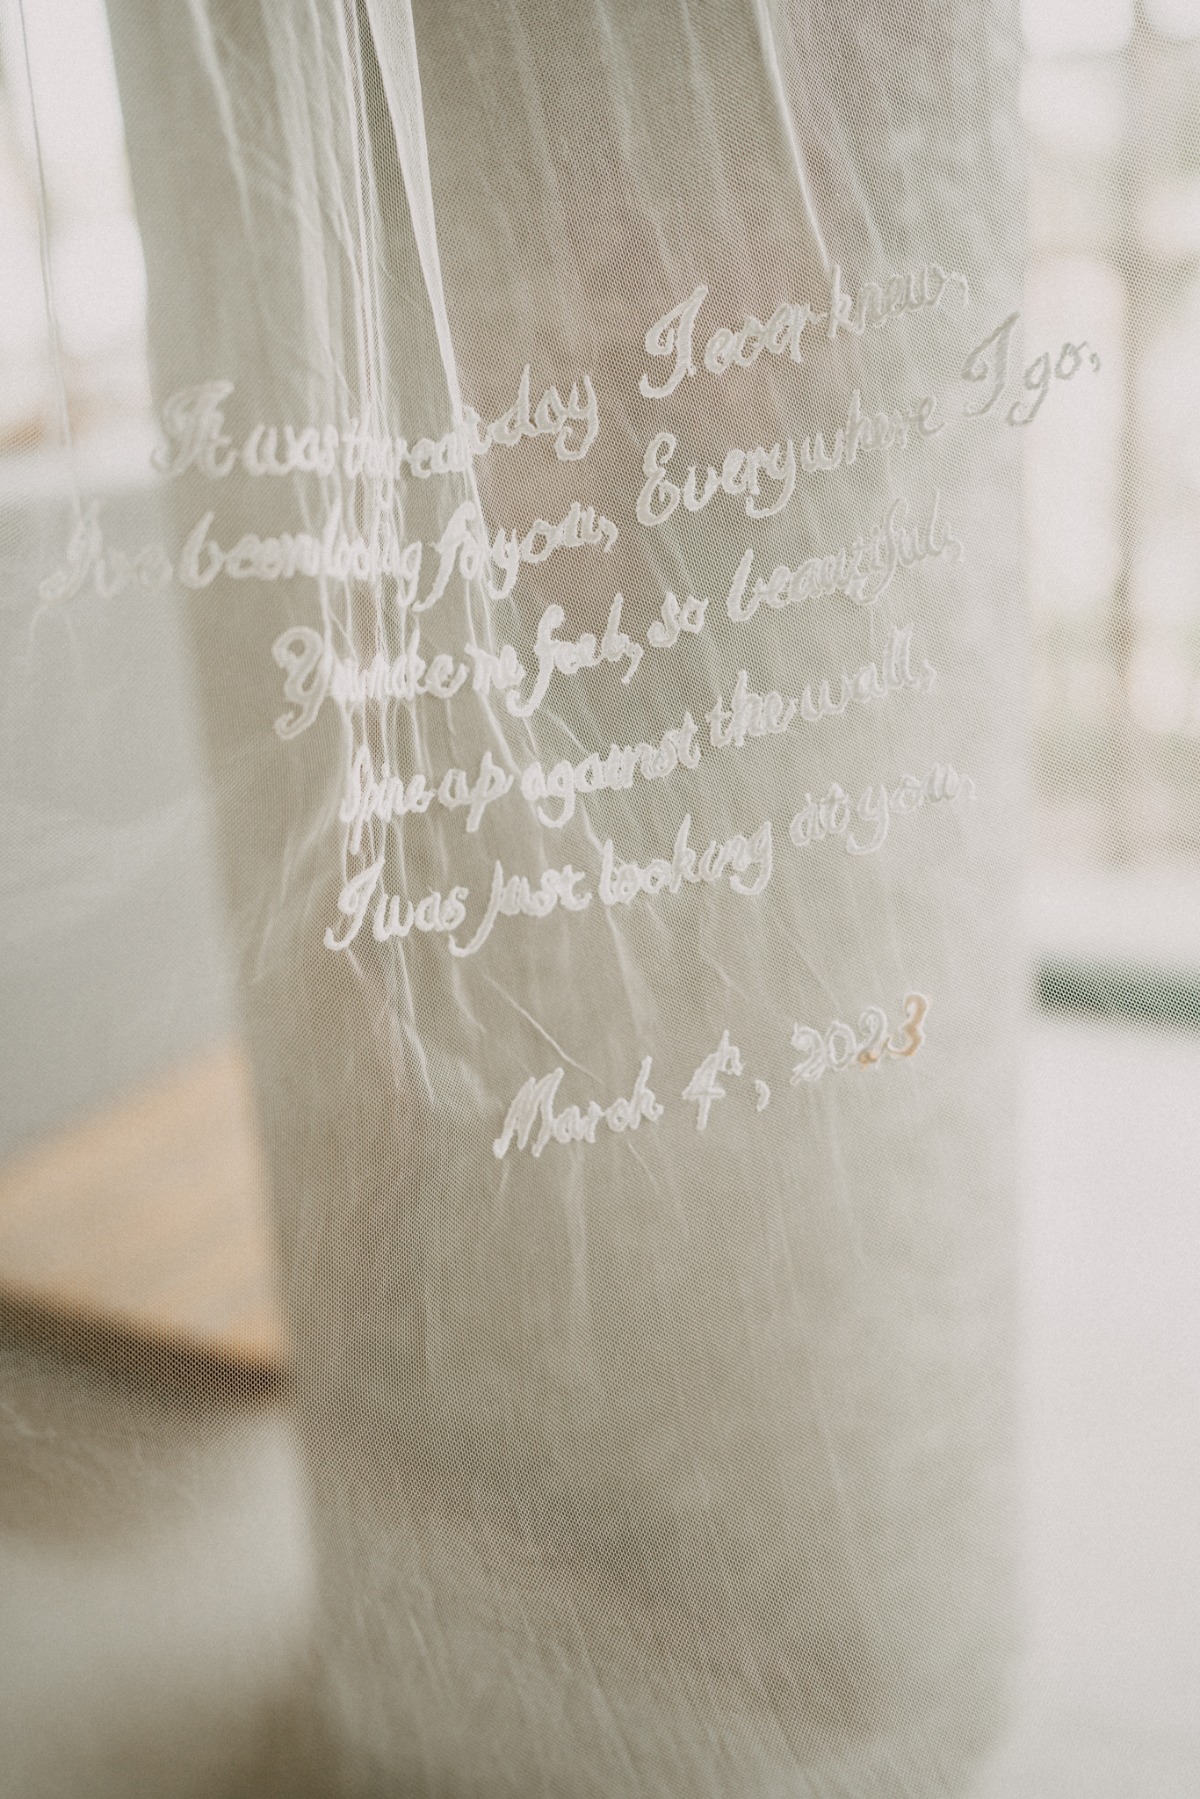 It was the real day I ever knew,
I've been looking for you, Everywhere I go,
You make me feel, so beautiful,
Spine up against the wall,
I was just looking at you,
March 4th, 2023